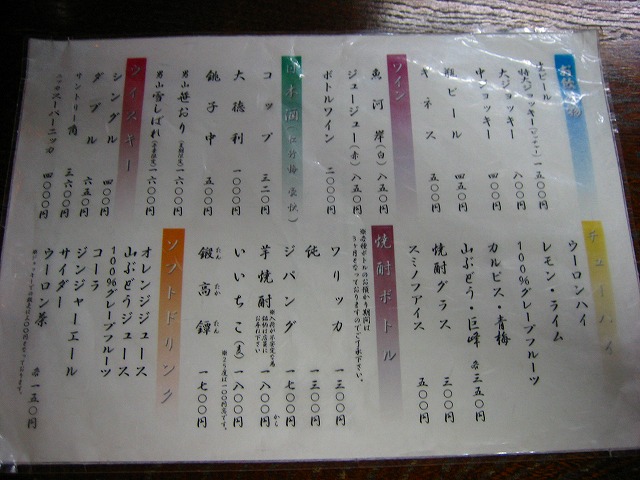 生ビール
特大ジョッキー 一五〇〇円
大ジョッキー 八〇〇円
中ジョッキー 四五〇円
瓶ビール 四五〇円
ギネス 五〇〇円
ワイン
魚河岸(白) 八五〇円
ジュージュー(赤) 八五〇円
ボトルワイン 二〇〇〇円
日本酒
コップ 三二〇円
大徳利 一〇〇〇円
銚子中 五〇〇円
男山 笹おり 一六〇〇円
男山 雪しばれ 一六〇〇円
ウイスキー
シングル 四〇〇円
ダブル 六五〇円
サントリー角 三六〇〇円
スーパーニッカ 四〇〇〇円
チューハイ
ウーロンハイ
レモン・ライム
100%グレープフルーツ
カルピス・青梅
山ぶどう・巨峰 各三五〇円
焼酎グラス 三〇〇円
スミノフアイス 五〇〇円
焼酎ボトル
※各種ボトルのお預かり期間は
3ヶ月となっておりますのでご了承下さい。
ワリッカ 一三〇〇円
純 一三〇〇円
ジパング 一七〇〇円
芋焼酎 一八〇〇円から
いいちこ(麦) 一八〇〇円
鍛高譚 一七〇〇円
たん たか たん
ソフトドリンク
オレンジジュース
山ぶどうジュース
100%グレープフルーツ
コーラ
ジンジャーエール
サイダー
ウーロン茶 各一五〇円